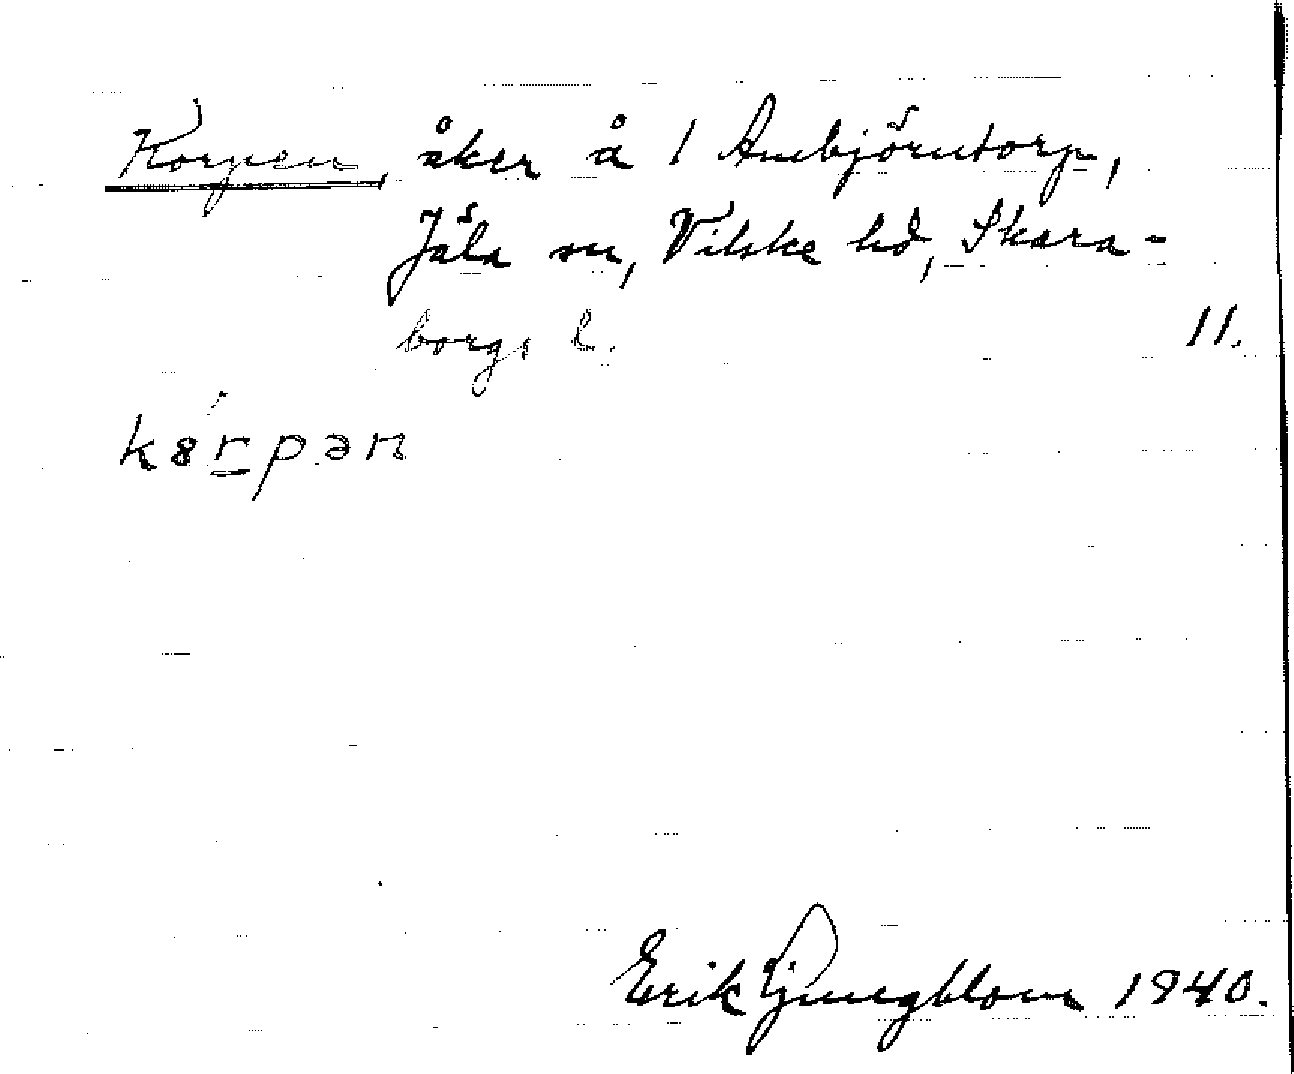 Korpen, åker å 1 Ambjörntorp,
Jäla sn, Vilske hd, Skara-
borgs l. 11.
kɵrpən
Erik Ljungblom 1940.